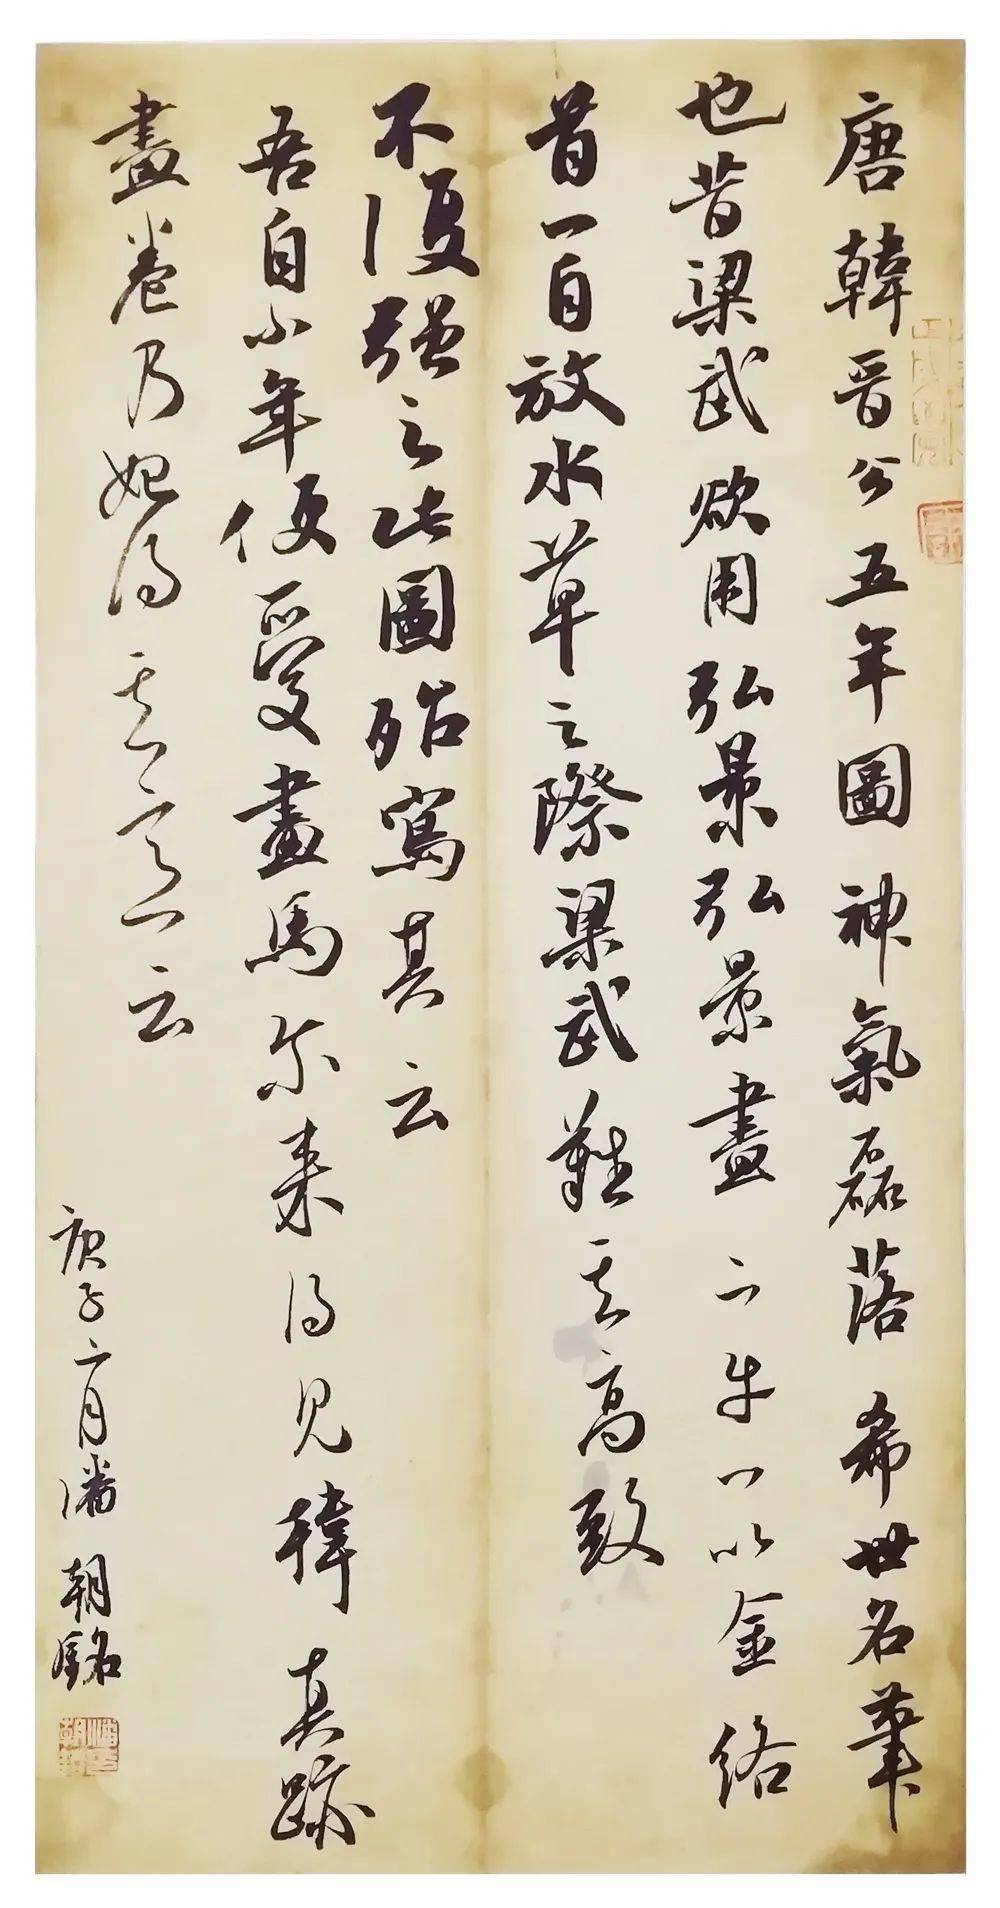 唐韓晉公五年圖神氣磊落希世名筆
也昔梁武欲用弘景弘景畫二牛一以金絡
首一自放水草之際梁武難其高致
不復強之此圖殆寫其云
吾自小年便愛畫馬尔來得見韓真跡
畫卷乃始得其意云
庚子二月潘朝銘